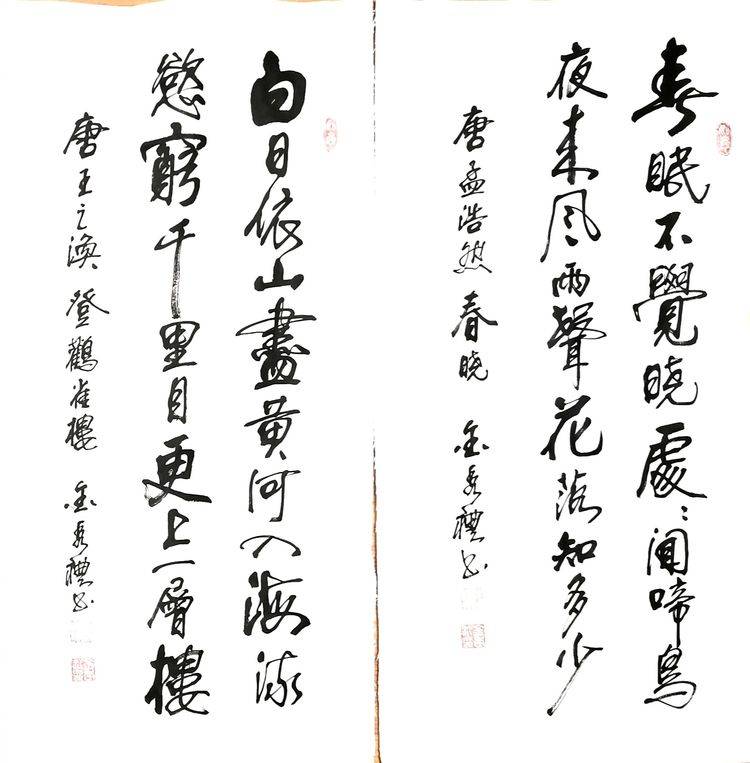 春眠不覺曉處〻聞啼鳥
夜来風雨聲花落知多少
唐孟浩然春曉
白日依山盡黄河入海流
慾窮千里目更上一層樓
唐王之渙登鸛雀樓